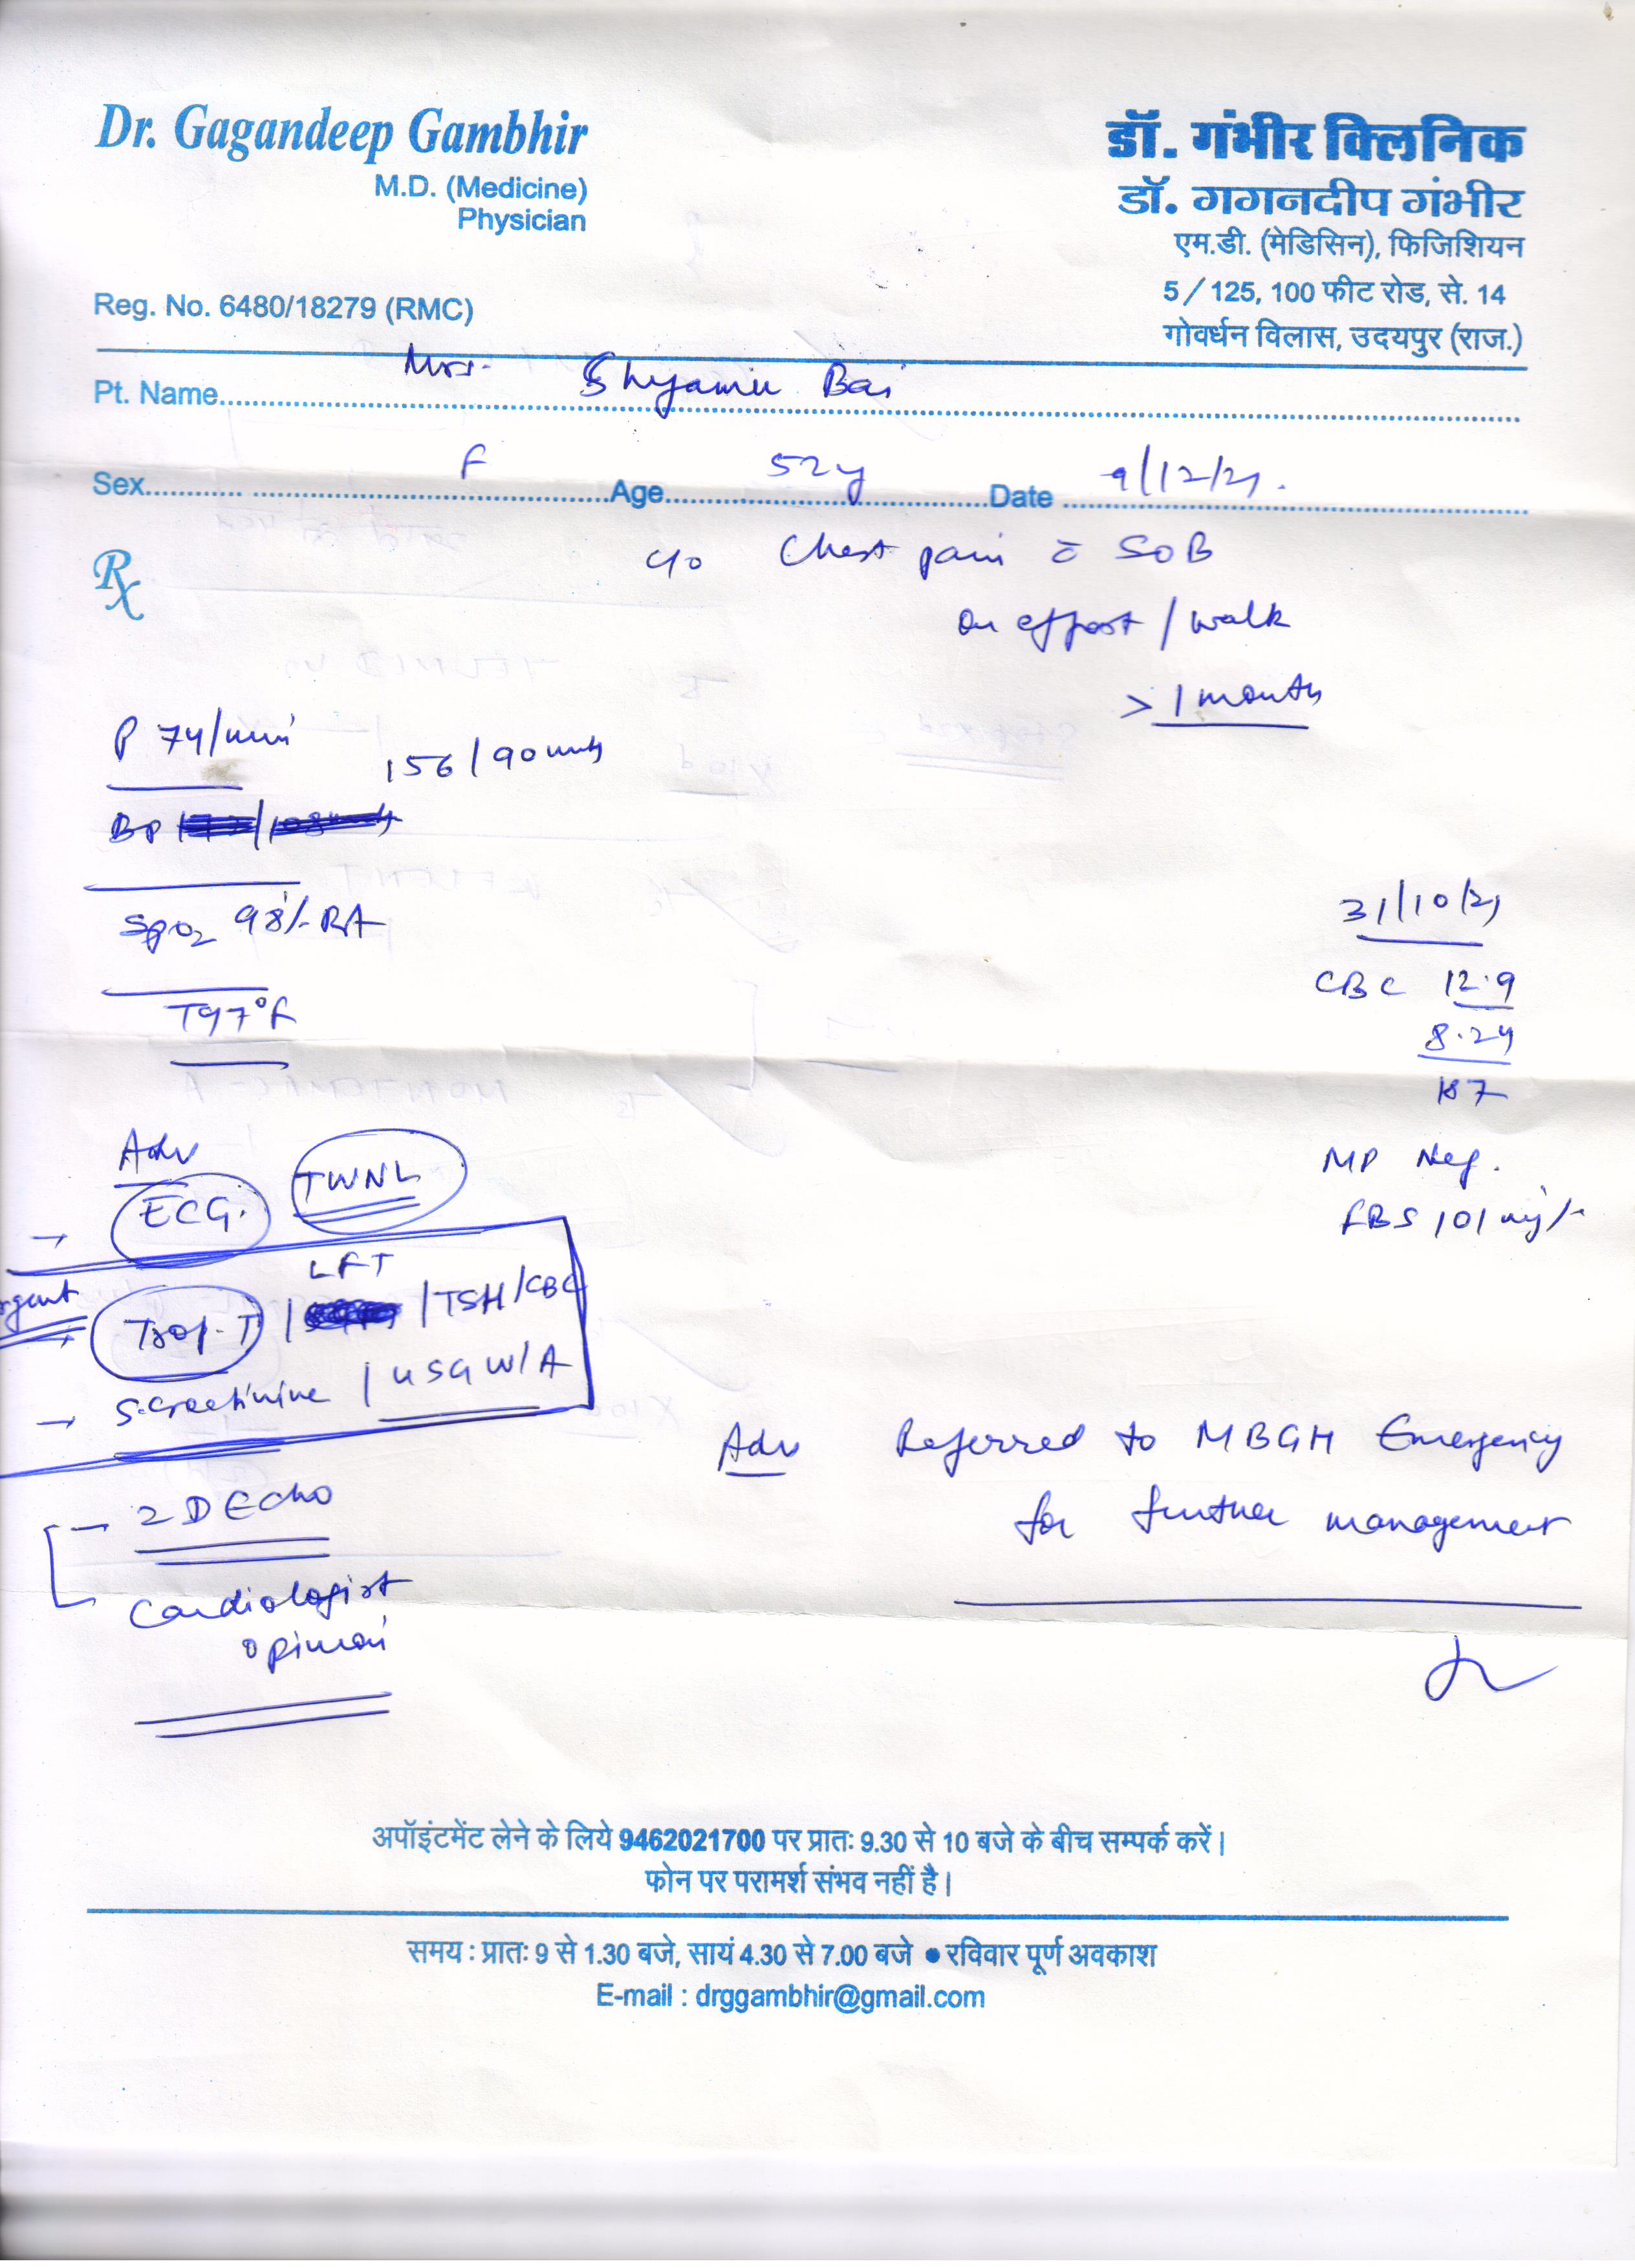 Dr. Gagandeep Gambhir
M.D. (Medicine)
Physician
Reg. No. 6480/18279 (RMC)
डॉ. गंभीर क्लिनिक
डॉ. गगनदीप गंभीर
एम.डी. (मेडिसिन), फिजिशियन
5/125, 100 फीट रोड, से. 14
गोवर्धन विलास, उदयपुर (राज.)
Pt. Name Mrs. Shyamu Bai
Sex F Age 52y Date 9/12/21.
Rx
c/o Chest pain c̄ SOB
on effort / walk
> 1 month
P 74/min
156/90
BP
SpO2 98% RA
T 97°F
31/10/21
CBC 12.9
8.24
187
MP Neg.
FBS 101 mg%
Adv
→ ECG. TWNL
LFT
→ Trop-T / / TSH / CBC
→ S.creatinine / USG W/A
- 2D Echo
Cardiologist
opinion
Adv Referred to MBGH Emergency
for further management
अपॉइंटमेंट लेने के लिये 9462021700 पर प्रातः 9.30 से 10 बजे के बीच सम्पर्क करें।
फोन पर परामर्श संभव नहीं है।
समय : प्रातः 9 से 1.30 बजे, सायं 4.30 से 7.00 बजे ● रविवार पूर्ण अवकाश
E-mail : drggambhir@gmail.com